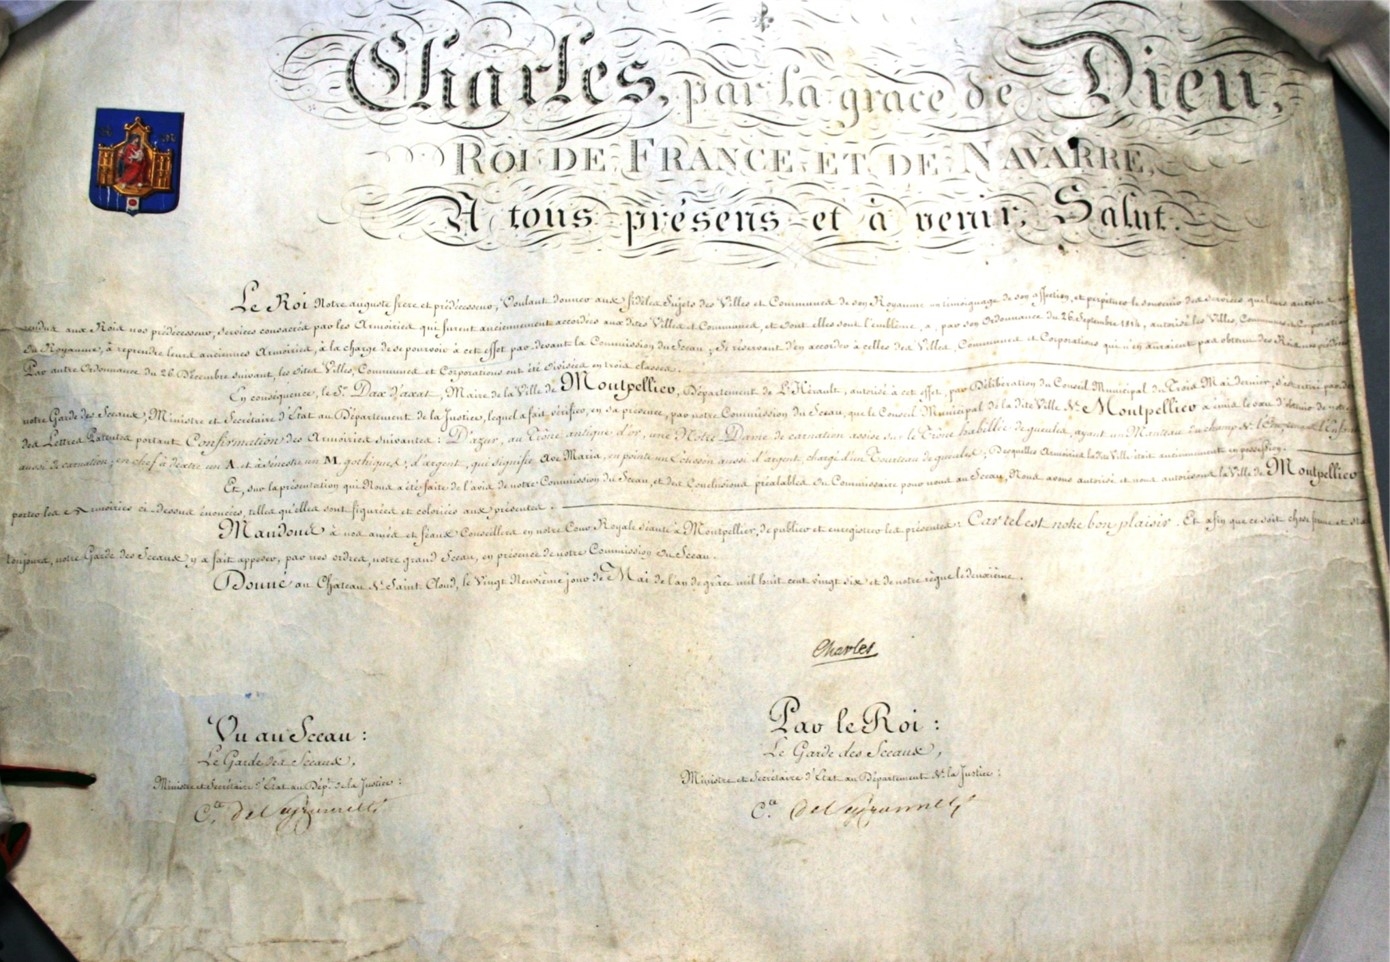 Charles, par la grace de Dieu,
ROI DE FRANCE ET DE NAVARRE,
A tous présens et à venir, Salut.
Le Roi Notre auguste frere et prédécesseur, Voulant donner aux fidèles Sujets des Villes et Communes de son Royaume un témoignage de son affection, et perpétuer le souvenir des services que leurs
rendus aux Rois nos prédécesseurs, services consacrés par les Armoiries qui furent anciennement accordées aux dites Villes et Communes, et dont elles sont l'emblême, a, par son Ordonnance du 26 Septembre 1814, autorisé les Villes, Communes et Corporations
du Royaume, à reprendre leurs anciennes Armoiries, à la charge de se pourvoir à cet effet par devant la Commission du Sceau; Se réservant d'en accorder à celles des Villes, Communes et Corporations qui n'en auraient pas obtenu des Rois nos
Par autre Ordonnance du 26 Décembre suivant, les dites Villes, Communes et Corporations ont été divisées en trois classes.
En conséquence, le Sr. Dax d'axat, Maire de la Ville de Montpellier, Département de L'Hérault, autorisé à cet effet, par Délibération du Conseil Municipal du Trois Mai dernier, s'est retiré par devant
notre Garde des Sceaux, Ministre et Secrétaire d'Etat au Département de la Justice, lequel a fait vérifier, en sa présence, par notre Commission du Sceau, que le Conseil Municipal de la dite Ville de Montpellier a émis le vœu d'obtenir de notre
des Lettres Patentes portant Confirmation des Armoiries suivantes: D'azur, au Trône antique d'or, une Notre Dame de carnation assise sur le Trône habillée de gueules, ayant un Manteau du champ &
aussi de carnation, en chef à dextre un A et à sénestre un M gothiques, d'argent, qui signifie Ave Maria, en pointe un Ecusson aussi d'argent, chargé d'un Tourteau de gueules; Desquelles Armoiries la dite Ville était anciennement en possession.
Et, sur la présentation qui Nous a été faite de l'avis de notre Commission du Sceau, et des Conclusions préalables du Commissaire pour nous au Sceau, Nous avons autorisé et nous autorisons la Ville de Montpellier
porter les Armoiries ci-dessus énoncées, telles qu'elles sont figurées et coloriées aux présentes.
Mandons à nos amés et féaux Conseillers en notre Cour Royale séante à Montpellier, de publier et enregistrer les présentes: Car tel est notre bon plaisir. Et afin que ce soit chose ferme et
toujours, notre Garde des Sceaux y a fait apposer, par nos ordres, notre grand Sceau, en présence de notre Commission du Sceau.
Donné au Château de Saint Cloud, le Vingt Neuvième jour de Mai de l'an de grâce mil huit cent vingt six et de notre règne le deuxième.
Charles
Vu au Sceau:
Le Garde des Sceaux,
Ministre et Secrétaire d'Etat au Dépt. de la Justice:
Cte. de Peyronnet
Par le Roi:
Le Garde des Sceaux,
Ministre et Secrétaire d'Etat au Département de la Justice:
Cte. de Peyronnet